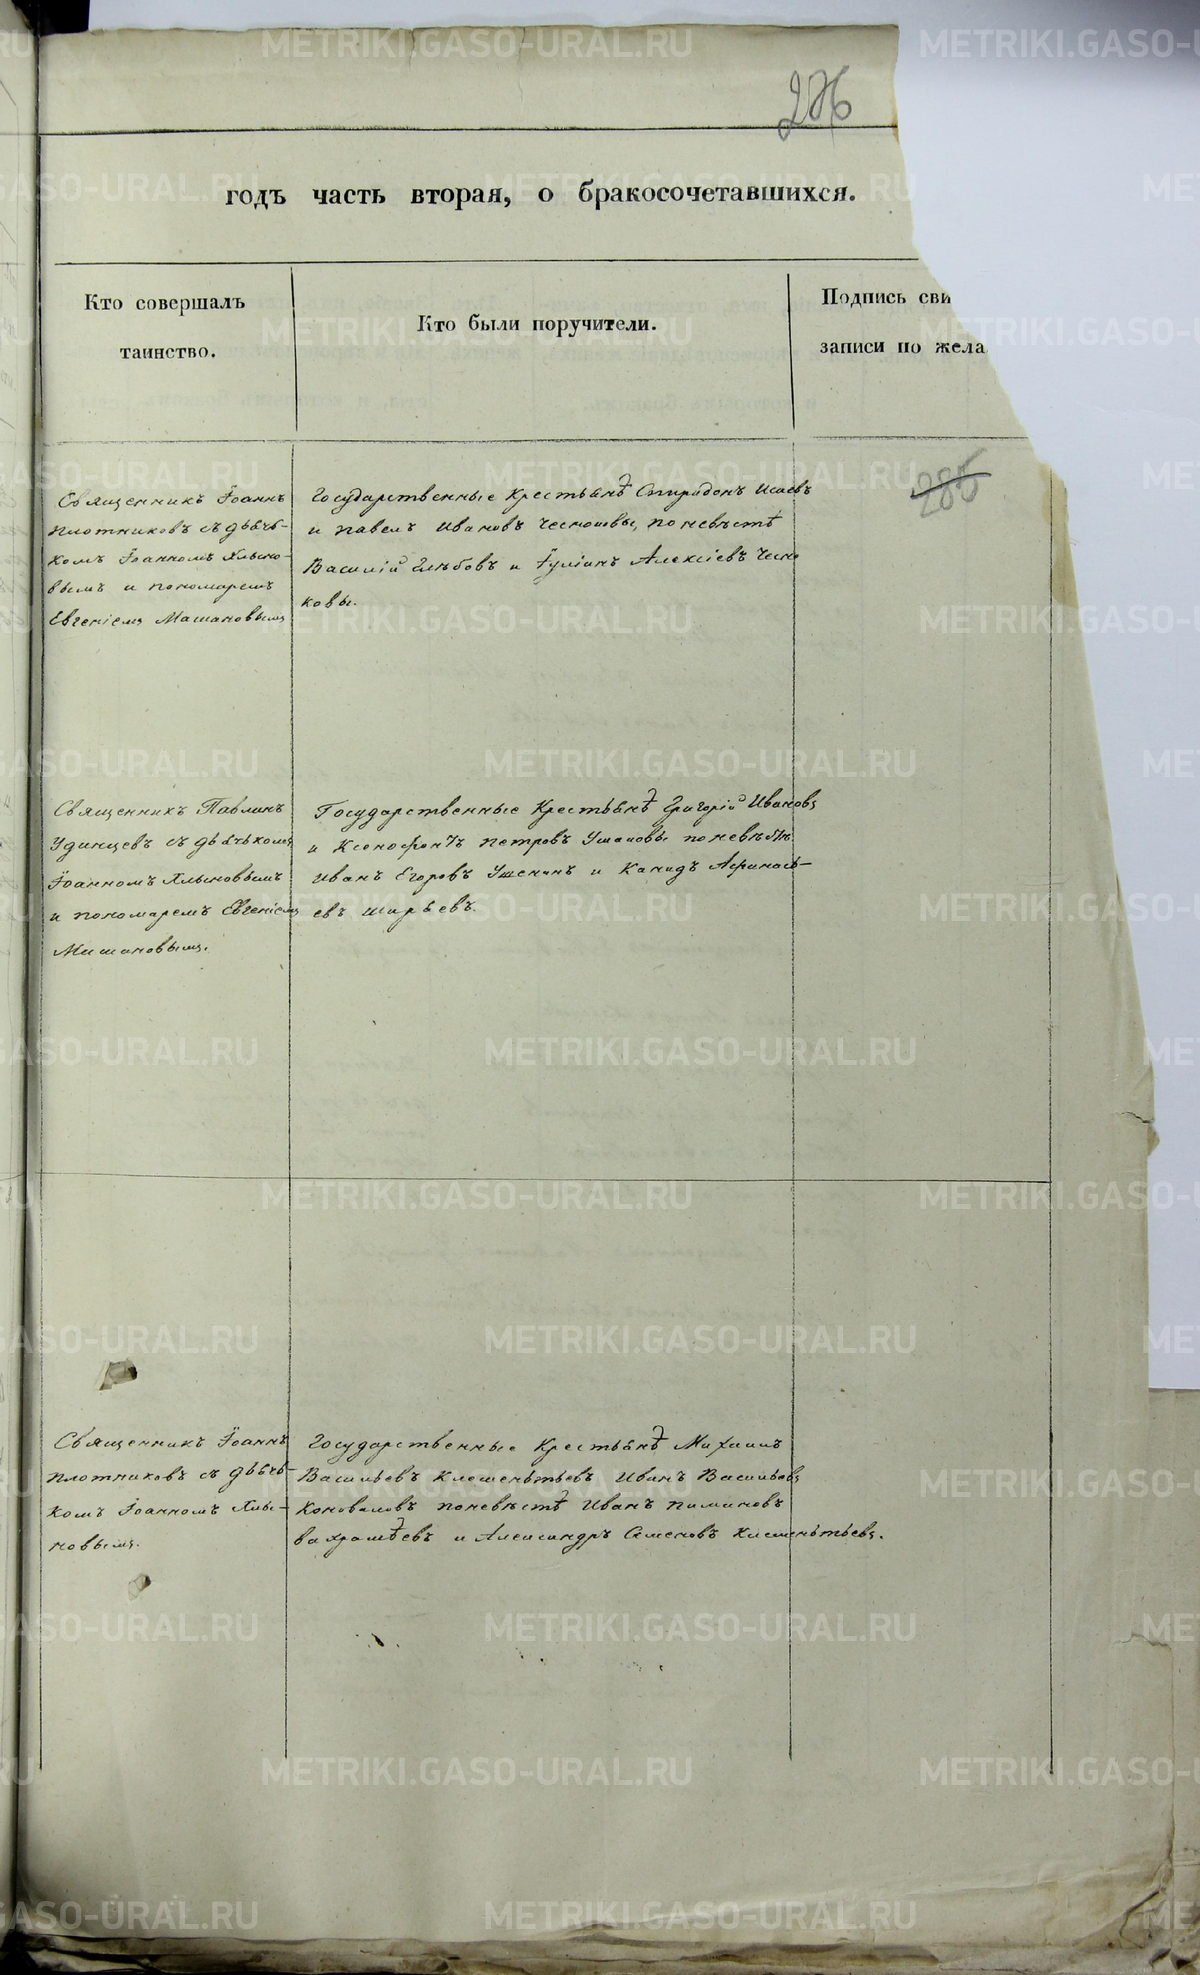 286
годъ часть вторая, о бракосочетавшихся.
Кто совершалъ
таинство.
Кто были поручители.
Подпись сви
записи по жела
286
Священникъ Іоаннъ
Плотниковъ съ дьяч-
комъ Іоанномъ Хлыно-
вымъ и пономаремъ
Евгеніемъ Машановымъ
Государственные крестьяне Спиридонъ Исаевъ
и Павелъ Ивановъ по невѣстѣ
Василій Глѣбовъ и Іуліанъ Алексіевъ Чесно
ковы.
Священникъ Павлинъ
Удинцевъ съ дьячкомъ
Іоанномъ Хлыновымъ
и пономаремъ Евгеніемъ
Машановымъ.
Государственные Крестьяне Григорій Ивановъ
и Ксенофонтъ Петровъ Ушаковы по невѣстѣ
Иванъ Егоровъ и Кандъ Афанась-
евъ Ширяевъ.
Священникъ Іоаннъ
Плотниковъ съ дьяч-
комъ Іоанномъ Хлы-
новымъ.
Государственные Крестьяне Михаилъ
Васильевъ Клементьевъ Иванъ Васильевъ
Коноваловъ по невѣстѣ Иванъ Пимановъ
Вахрамѣевъ и Александръ Семеновъ Клементьевъ.
METRIKI.GASO-URAL.RU